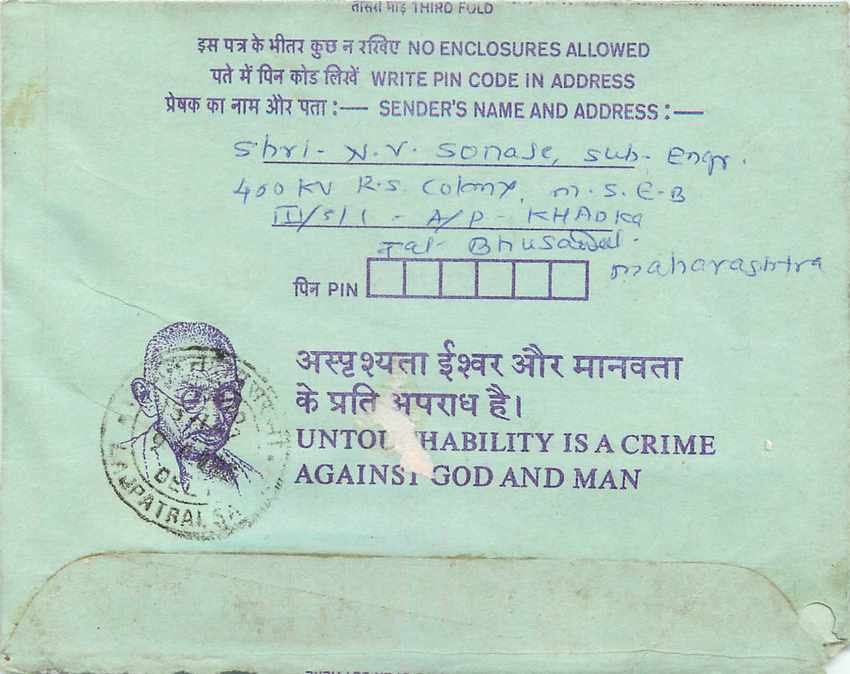 तीसरा मोड़ THIRD FOLD
इस पत्र के भीतर कुछ न रखिए NO ENCLOSURES ALLOWED
पते में पिन कोड लिखें WRITE PIN CODE IN ADDRESS
प्रेषक का नाम और पता :— SENDER'S NAME AND ADDRESS :—
Shri- N.V. Sonaje, Sub- Engr.
400 KV R.S. Colony, M.S.E-B
II/5/1 - A/P- KHADKA
Tal- Bhusawal.
Maharashtra
पिन PIN
अस्पृश्यता ईश्वर और मानवता
के प्रति अपराध है।
UNTOUCHABILITY IS A CRIME
AGAINST GOD AND MAN
LAJPATRAI